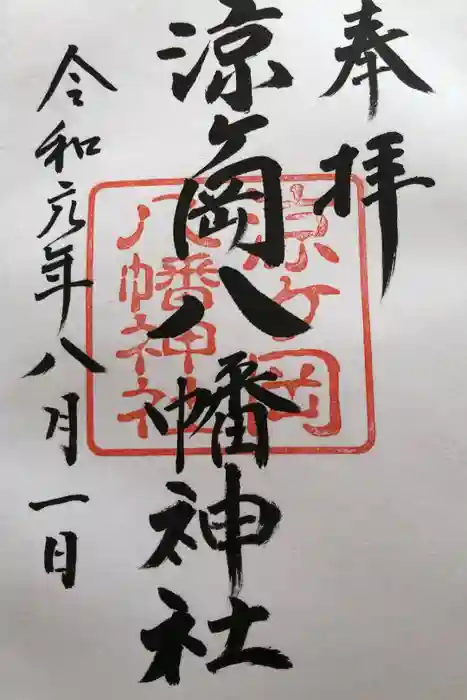 奉拝
涼ヶ岡八幡神社
令和元年八月一日
涼ヶ岡
八幡神社